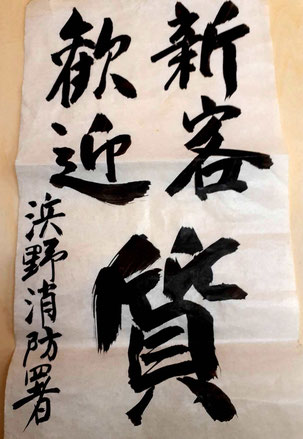 新客
歓迎
浜野消防署